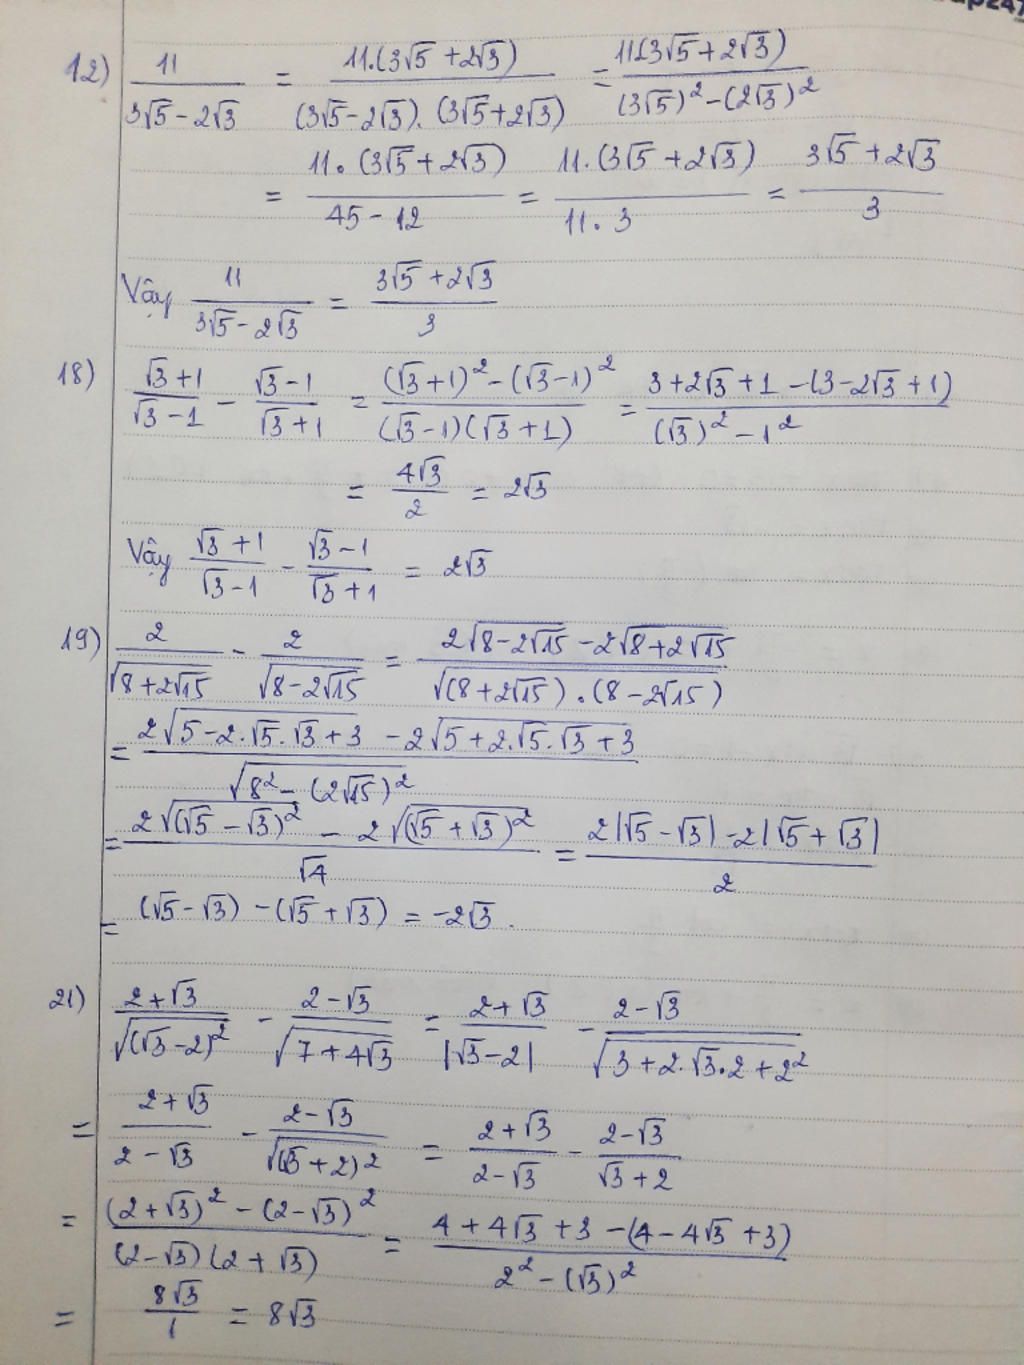 12) 11/(3√5 - 2√3) = 11.(3√5 + 2√3)/((3√5 - 2√3).(3√5 + 2√3)) = 11.(3√5 + 2√3)/((3√5)² - (2√3)²)
= 11.(3√5 + 2√3)/(45 - 12) = 11.(3√5 + 2√3)/(11.3) = (3√5 + 2√3)/3
Vậy 11/(3√5 - 2√3) = (3√5 + 2√3)/3
18) (√3 + 1)/(√3 - 1) - (√3 - 1)/(√3 + 1) = ((√3 + 1)² - (√3 - 1)²)/((√3 - 1)(√3 + 1)) = (3 + 2√3 + 1 - (3 - 2√3 + 1))/((√3)² - 1²)
= 4√3/2 = 2√3
Vậy (√3 + 1)/(√3 - 1) - (√3 - 1)/(√3 + 1) = 2√3
19) 2/√(8 + 2√15) - 2/√(8 - 2√15) = (2√(8 - 2√15) - 2√(8 + 2√15))/√((8 + 2√15).(8 - 2√15))
= (2√(5 - 2.√5.√3 + 3) - 2√(5 + 2.√5.√3 + 3))/√(8² - (2√15)²)
= (2√((√5 - √3)²) - 2√((√5 + √3)²))/√4 = (2|√5 - √3| - 2|√5 + √3|)/2
= (√5 - √3) - (√5 + √3) = -2√3.
21) (2 + √3)/√((√3 - 2)²) - (2 - √3)/√(7 + 4√3) = (2 + √3)/|√3 - 2| - (2 - √3)/√(3 + 2.√3.2 + 2²)
= (2 + √3)/(2 - √3) - (2 - √3)/√((√3 + 2)²) = (2 + √3)/(2 - √3) - (2 - √3)/(√3 + 2)
= ((2 + √3)² - (2 - √3)²)/((2 - √3)(2 + √3)) = (4 + 4√3 + 3 - (4 - 4√3 + 3))/(2² - (√3)²)
= 8√3/1 = 8√3